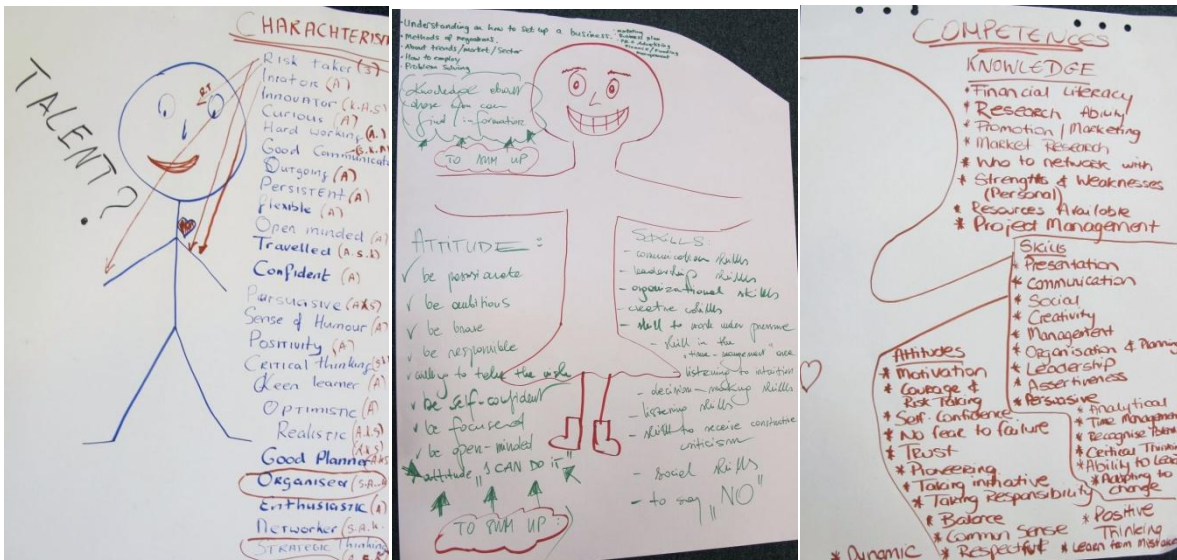 TALENT?
CHARACHTERIS
Risk taker (S)
(A)
Innovator (K.A.S)
Curious (A)
Hard working (A.)
Good Communicat (S.K.A)
Outgoing (A)
PERSISTENT (A)
flexible (A)
Open minded (A)
Travelled (A.S.K)
Confident (A)
Persuasive (A.K.S)
Sense of Humour (A)
Positivity (A)
CRITICAL Thinking
Keen learner (A)
OPTIMISTIC (A)
Realistic (A.K.S)
Good Planner
Organiser (S.A.
Enthusiastic (A)
Networker (S.A.K.
STRATEGIC Thinking
- Understanding on how to set up a business.
- marketing
Business plan
PR & Advertising
Finance/Funding
management
- Methods of negotiations.
- About trends/market/sector
- How to employ
- Problem solving
Knowledge about
where you can
find information
TO SUM UP
ATTITUDE:
√ be passionate
√ be ambitious
√ be brave
√ be responsible
willing to take the risk
√ be self-confident
√ be focused
√ be open-minded
attitude „I CAN DO IT"
TO SUM UP:
SKILLS:
- communication skills
- leadership skills
- organizational skills
- creative skills
- skill to work under pressure
- skill in the
"time-management" area
- listening to intuition
- decision-making skills
- listening skills
- skill to receive constructive
criticism
- social skills
- to say „NO"
COMPETENCES
KNOWLEDGE
* Financial Literacy
* Research Ability
* Promotion / Marketing
* Market Research
* Who to network with
* Strengths & Weaknesses
(Personal)
* Resources Available
* Project Management
Skills
* Presentation
* Communication
* Social
* Creativity
* Management
* Organisation & Planning
* Leadership
* Assertiveness
* Persuasive
* Analytical
* Time Management
* Recognise
* Critical Thinking
* Ability to
* Adapting to
change
Attitudes
* Motivation
* Courage &
Risk Taking
* Self-Confidence
* No fear to failure
* Trust
* Pioneering
* Taking initiative
* Taking Responsibility
* Balance
* Common Sense
* Respectful
* Dynamic
* Positive
Thinking
* Learn from Mistakes